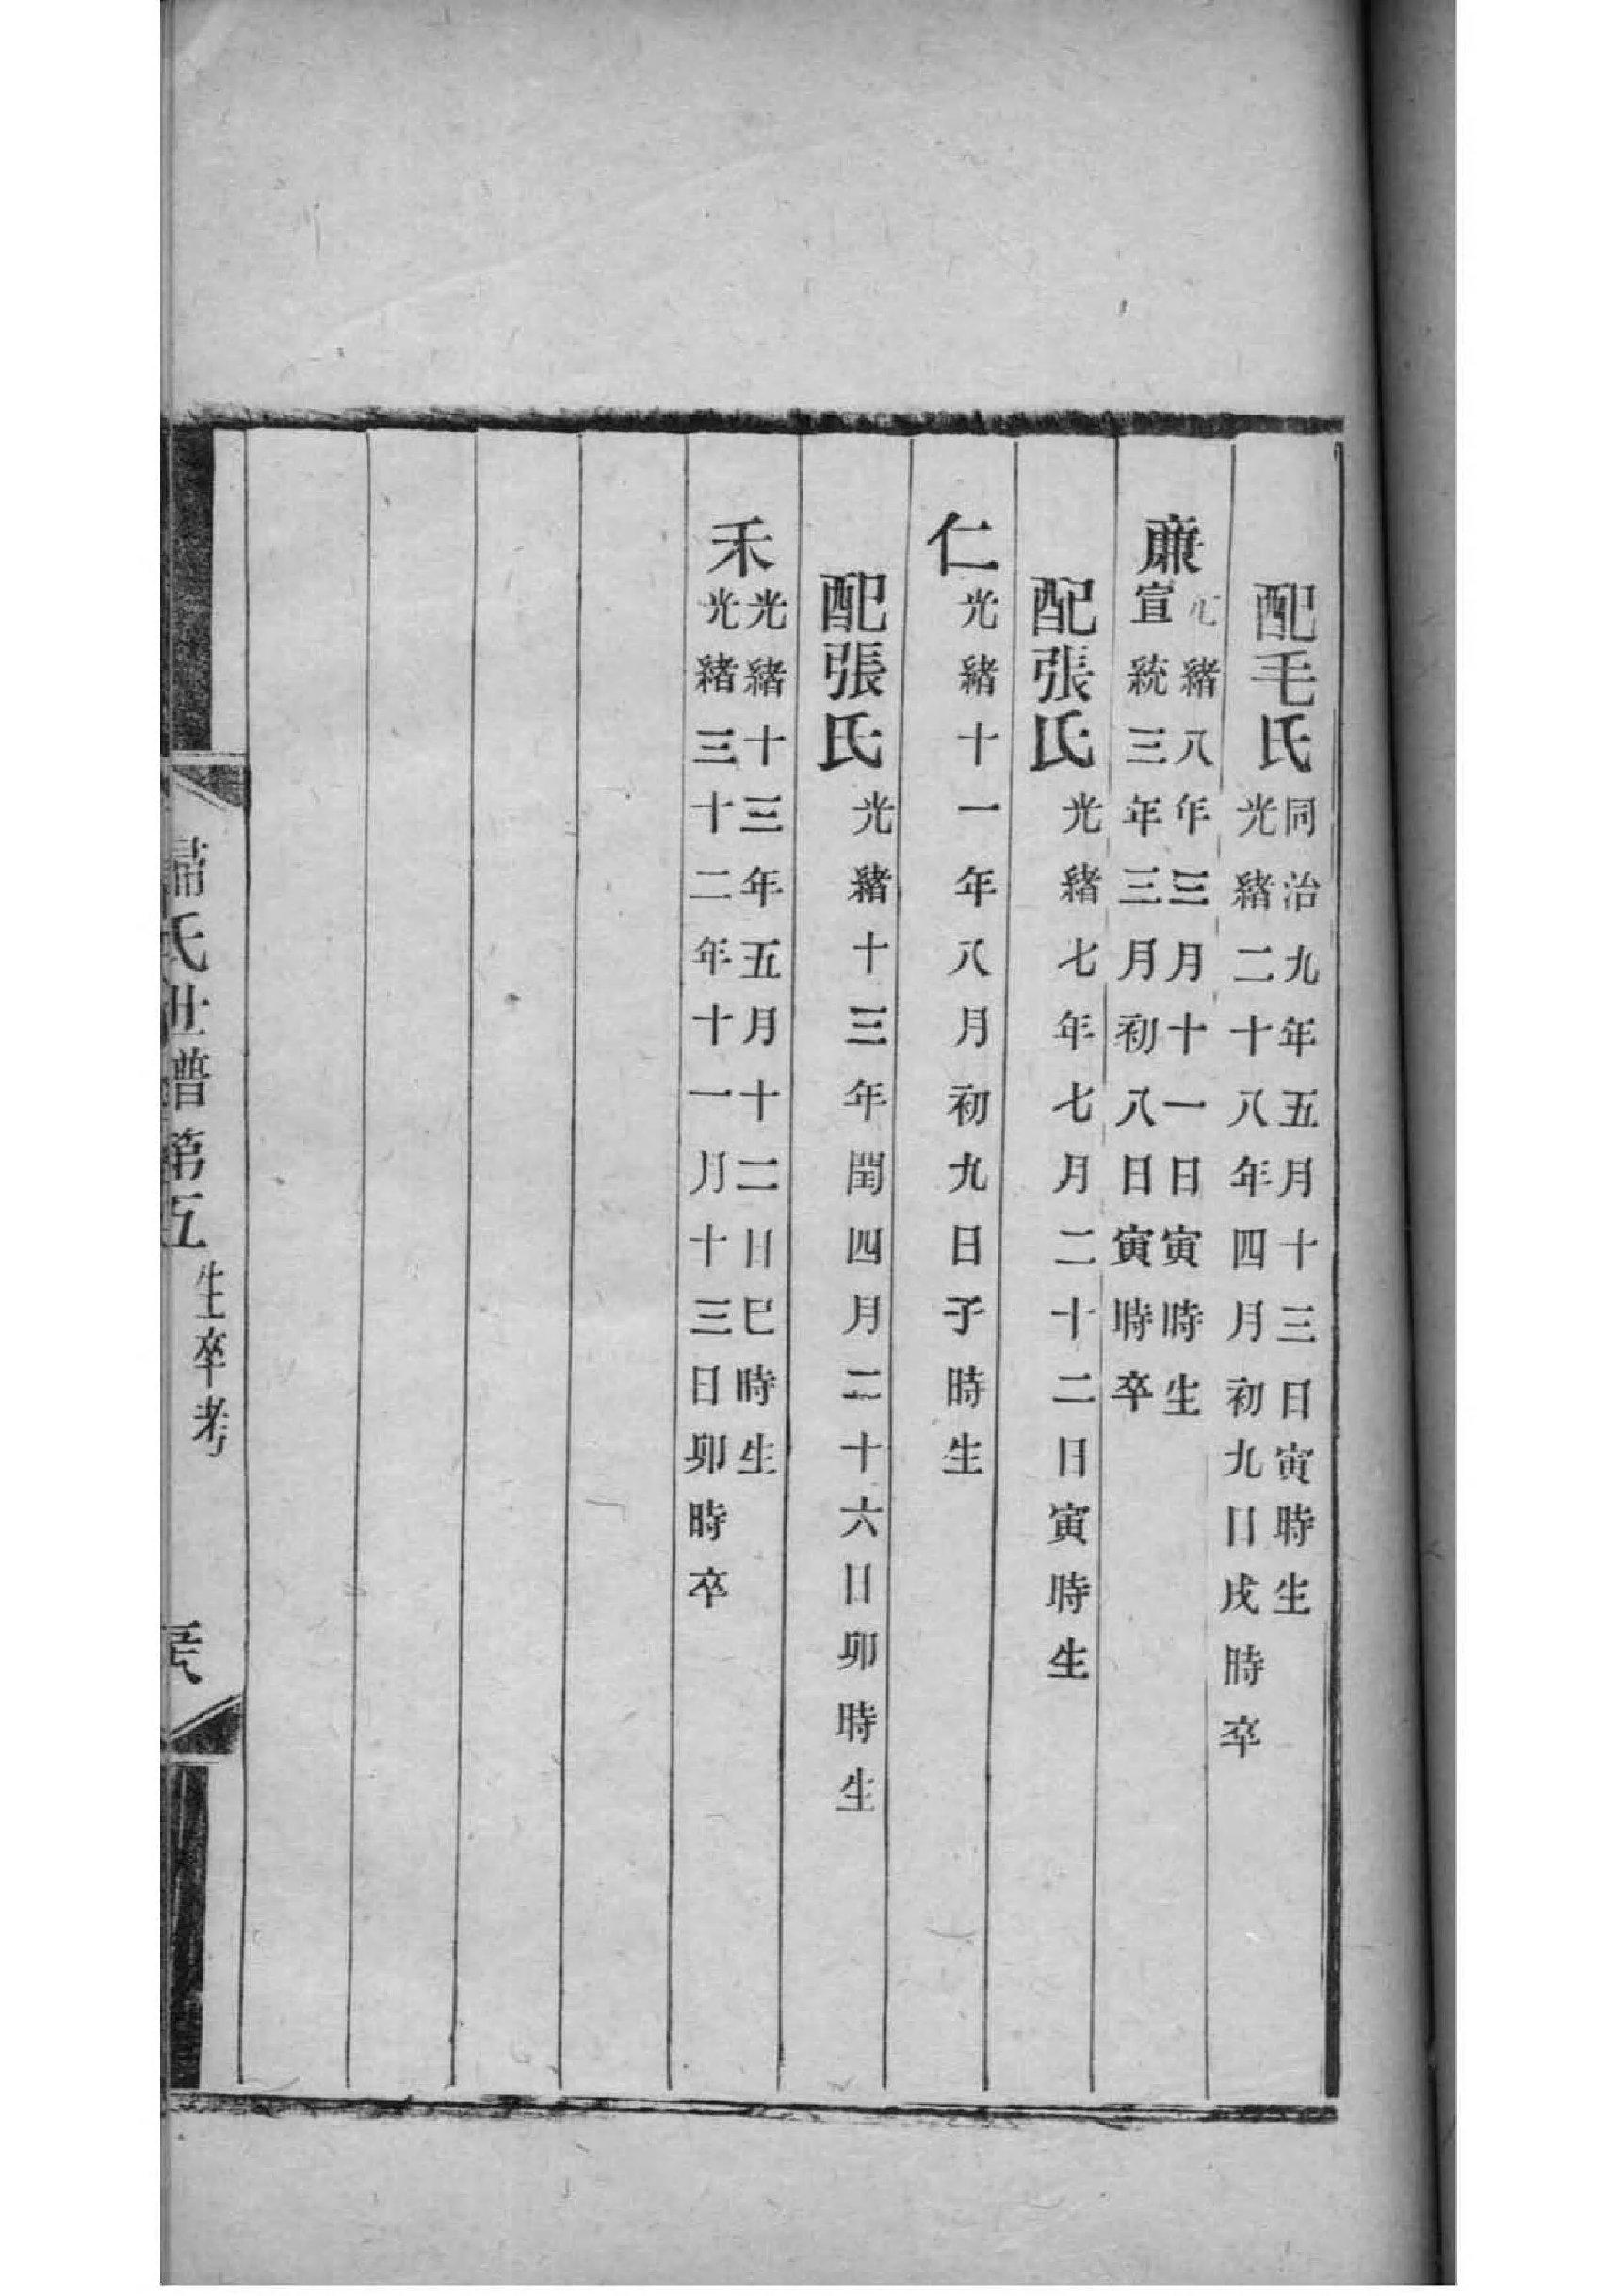 配毛氏
同治九年五月十三日寅時生
光緒二十八年四月初九日戌時卒
廉
緒八年三月十一日寅時生
宣統三年三月初八日寅時卒
配張氏
光緒七年七月二十二日寅時生
仁
光緒十一年八月初九日子時生
配張氏
光緒十三年閏四月二十六日卯時生
禾
光緒十三年五月十二日巳時生
光緒三十二年十一月十三日卯時卒
氏世譜第五
生卒考